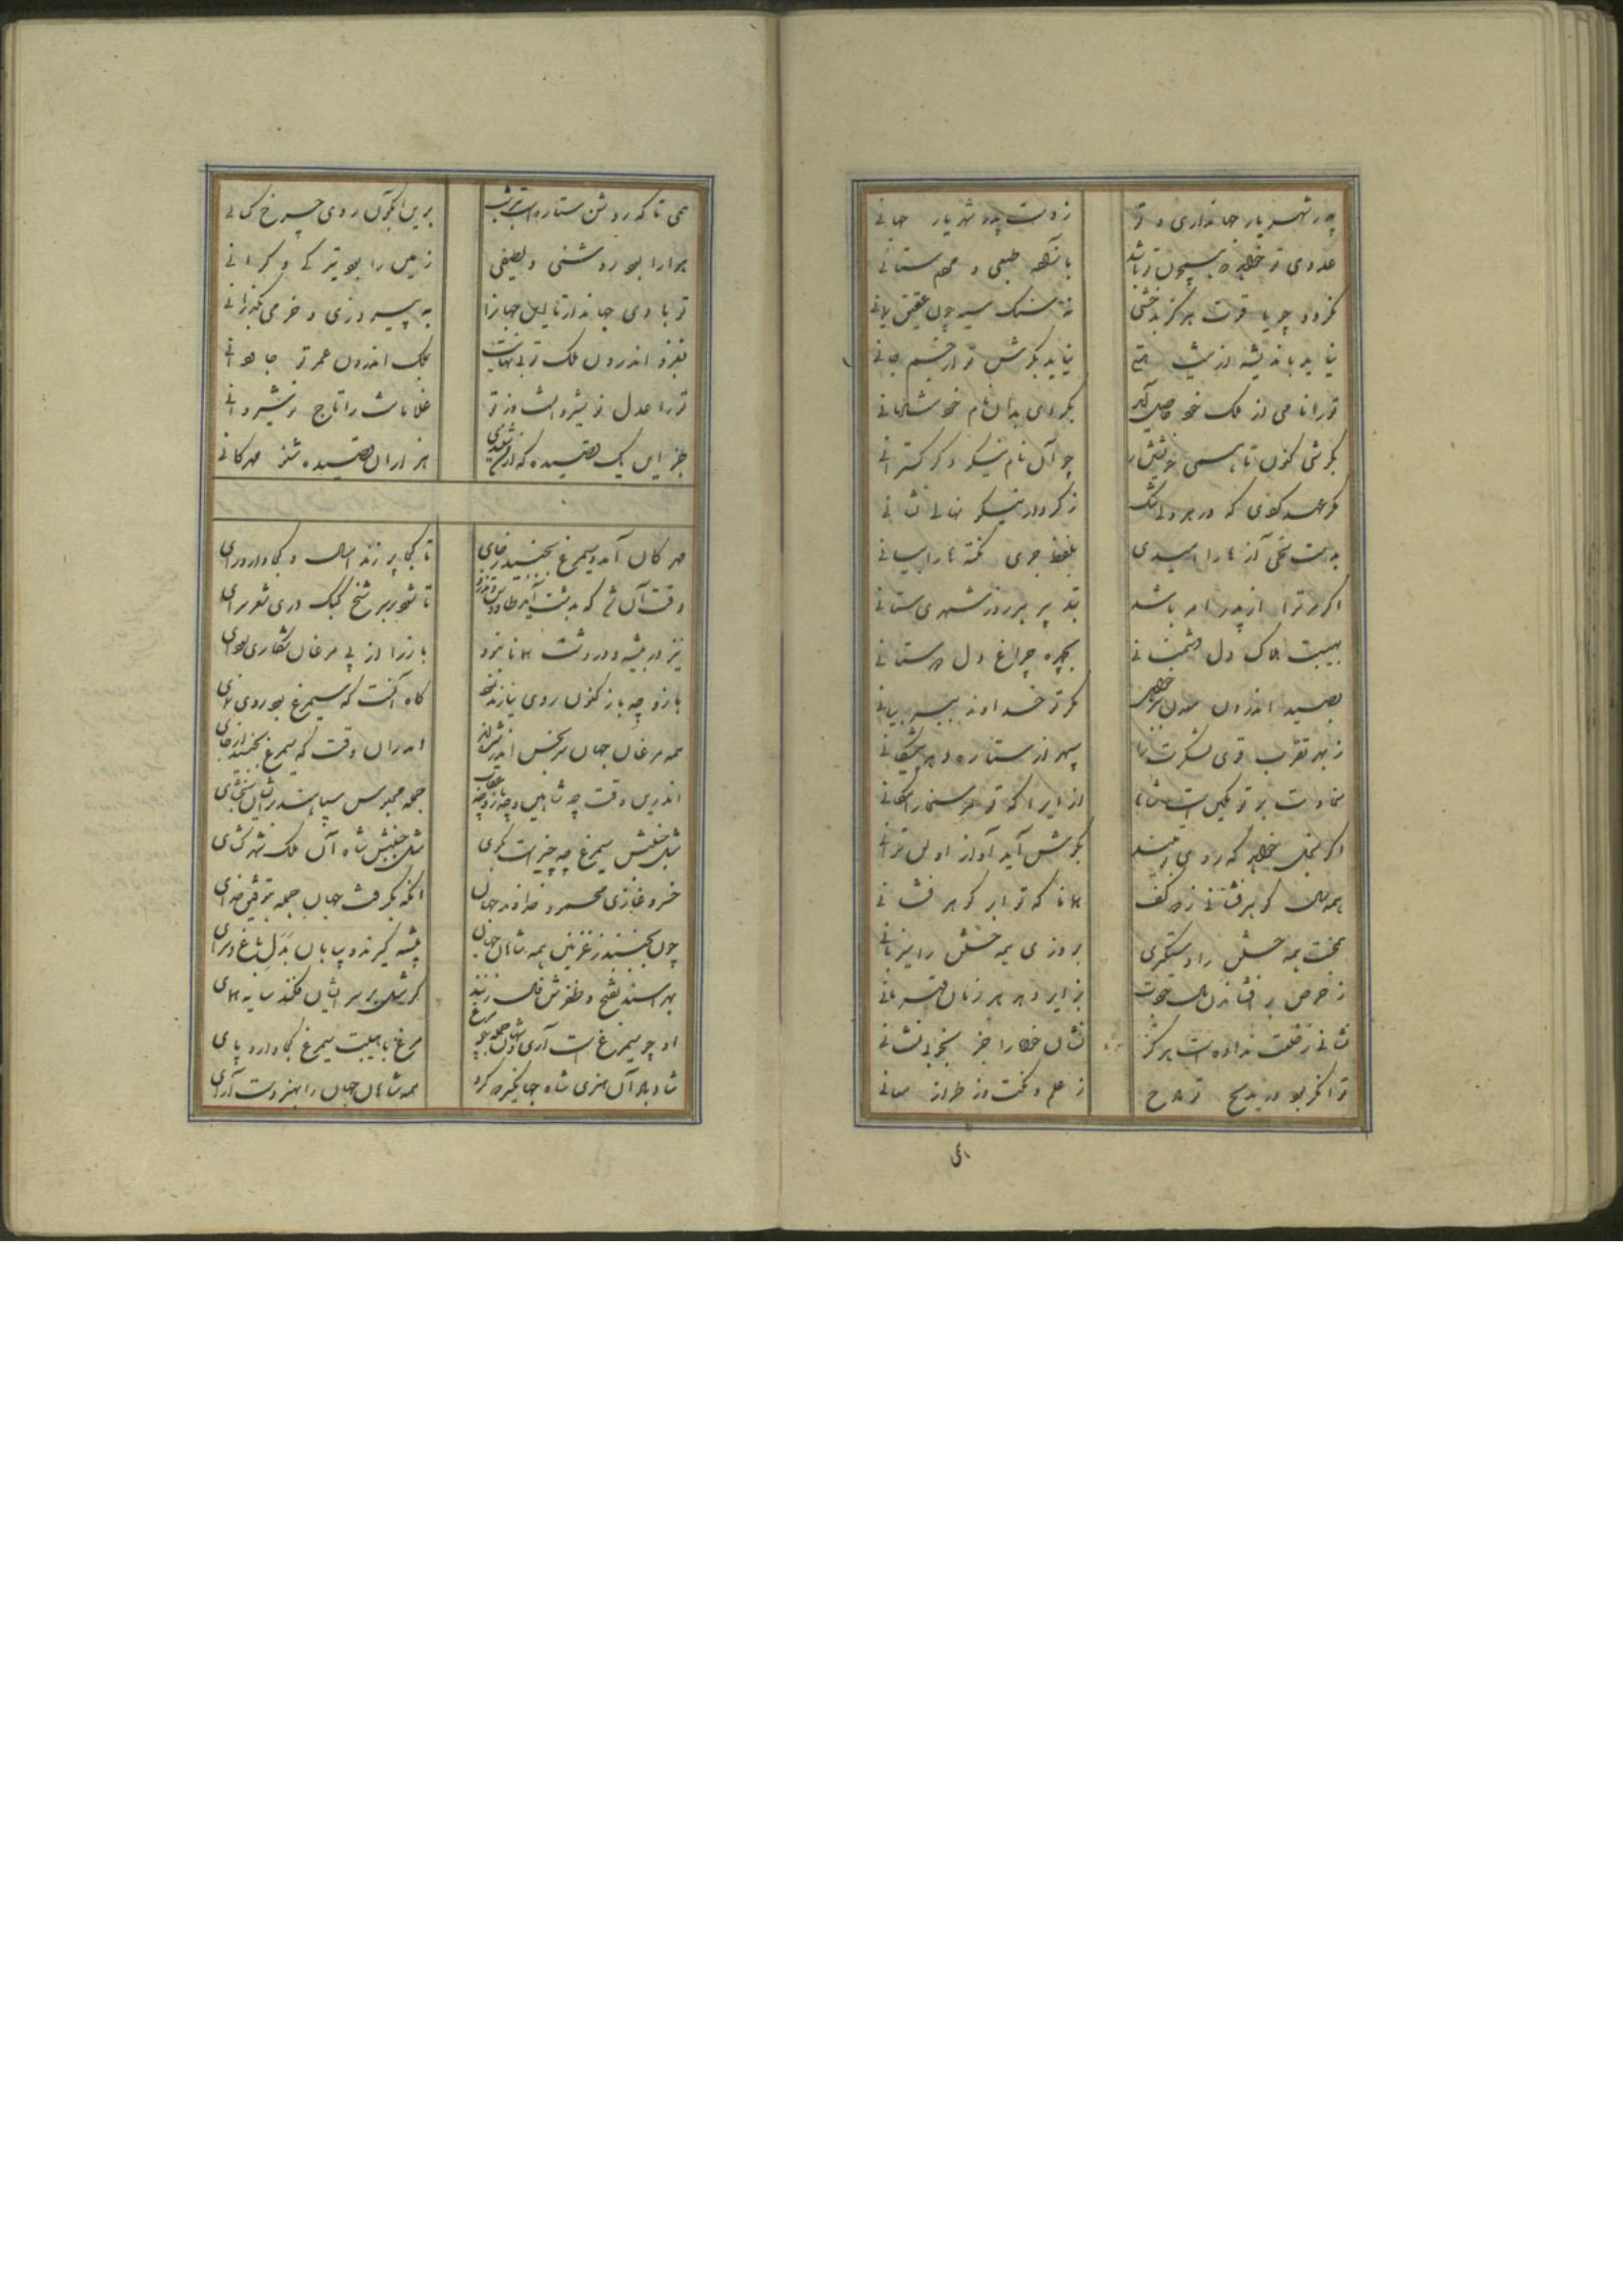 پدر شهریار جهانداری و تو ز دست پدر شهریار جهانی
عدوی تو خواهد که همچون تو باشد بآزاده طبعی و مردم ستانی
نگردد چو یاقوت هرگز بدخشی نه سنگ سیه چون عقیق یمانی
نیاید باندیشه از نیست هستی نیاید بکوشش ز جسم جانی
تو را نامی از ملک خود حاصل آید بکردی بدان نام خوش
بکوشی کنون تا همی خویش چو آن نام نیکو گستر انی
مگر عهد کردی که در هر دلی ز کردار نیکو نهالی نشانی
بدست سخی آزها را امیدی بلفظ جری نکته ها را بیانی
اگر مر ترا از پدر امر باشد بتدبیر هر روز شهری ستانی
بهیبت هلاک دل دشمنانی بچهره چراغ دل دوستانی
بصید اندرون معدن ببر خواهی مگر تو خداوند ببر بیانی
ز بهر تقرب قوی لشکرت را سپهر از ستاره دهد بیستگانی
سخاوت بر تو مکین است شاها ازیرا که تو مر سخا را مکانی
اگر بخل خواهد که روی تو بیند بگوش آید آواز او لن ترانی
همه سال گوهر فشانی ز دو کف همانا که تو ابر گوهر فشانی
ببخت همه خلق را دستگیری بروزی همه خلق را میزبانی
ز حرص بر افشاندن مال جودت بزایر دهد هر زمان قهرمانی
نشانی ز خلقت نداده است هرگز نشان خواه را جز بخوبی نشانی
توانگر بود در مدیح تو مداح ز علم و نکت وز طراز معانی
همی تا که روشن ستاره است هر شب برین آبگون روی چرخ کیانی
هوا را بود روشنی و لطیفی زمین را بود تیرگی و گرانی
تو بادی جهاندار تا این جهان را به پیروزی و خرمی بگذرانی
بعز اندرون ملک تو بی نهایت بملک اندرون عمر تو جاودانی
ترا عدل نوشیروانست وز تو غلامانت را تاج نوشیروانی
جز این یک قصیده که از من شنیدی هزاران قصیده شنو مهرگانی
مهرگان آمد و سیمرغ بجنبید ز جای تا کجا پر زند امسال و کجا دارد رای
وقت آن شد که بدشت آید طاوس و تذرو تا شود بر سر شخ کبک دری شعر سرای
نیز در بیشه و در دشت همانا نبود باز را از پی مرغان شکاری هوای
باز و جز باز کنون روی نیارند نمود گاه آنست که سیمرغ بود روی نمای
همه مرغان جهان سر بخس اندر شده‌اند اندران وقت که سیمرغ بجنبید از جای
اندرین وقت چه شاهین و چه باز و چه عقاب
مثل جنبش سیمرغ چه چیز است بگوی مثل جنبش شاه آن ملک شهر گشای
خسرو غازی محمود خداوند جهان آنکه بگرفت جهان جمله بتوفیق خدای
چون بجنبد ز غزنین همه شاهان جهان بیشه گیرند و بیابان بدل باغ و سرای
بهراسند بفتح و ظفرش فال زنند گر مثل بر سر ایشان فکند سایه همای
او چو سیمرغ است آری و شهان جمله چو مرغ مرغ با هیبت سیمرغ کجا دارد پای
شاد باد آن هنری شاه جهانگیر که کرد همه شاهان جهان را بهنر دست آرای